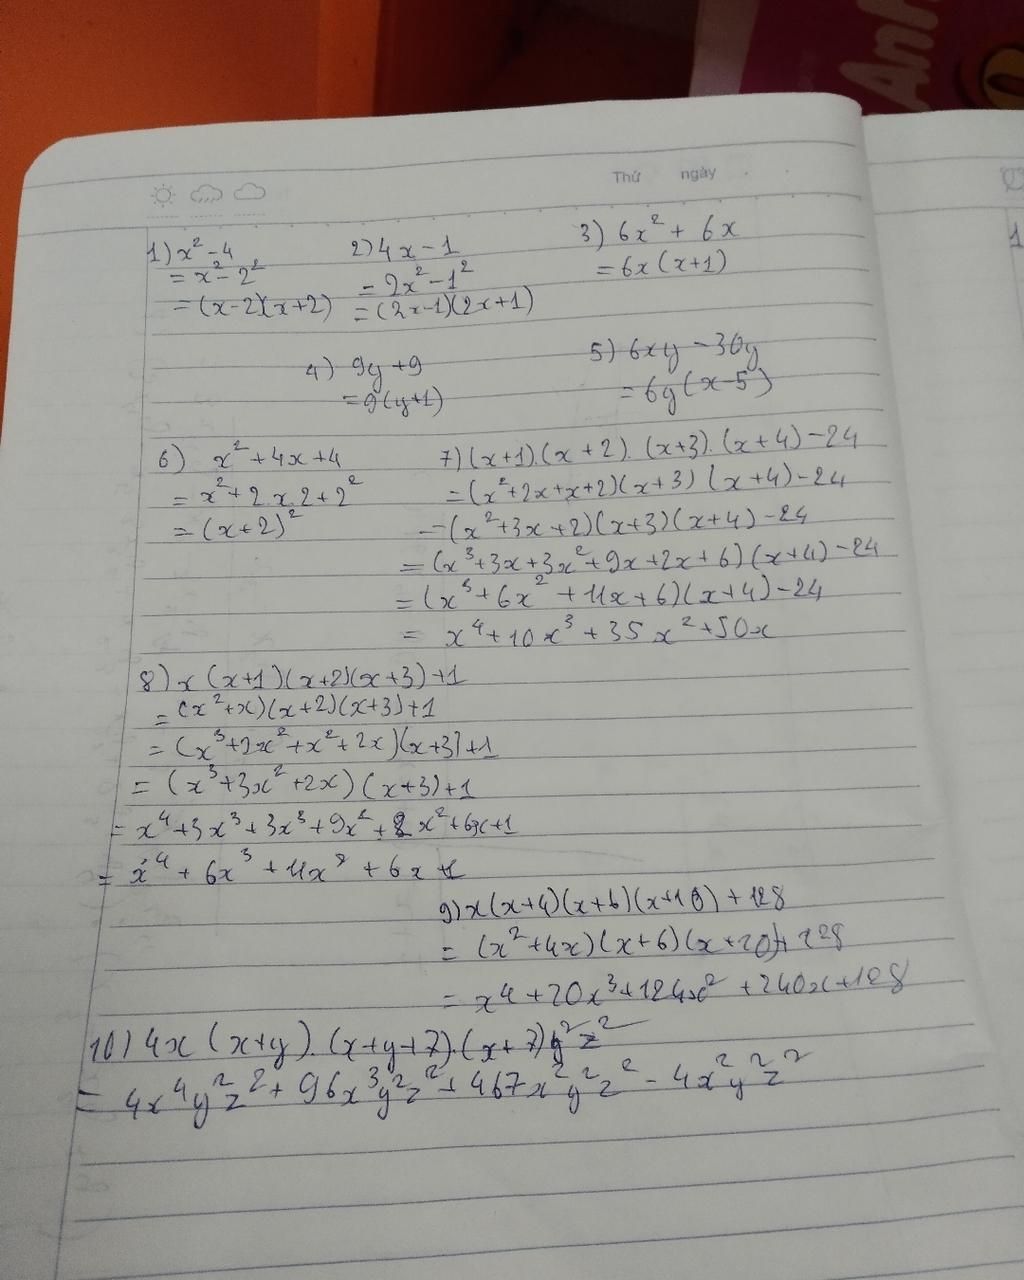 Anh
Thứ ngày
1) x² - 4
= x² - 2²
= (x-2)(x+2)
2) 4x - 1
= 2x² - 1²
= (2x-1)(2x+1)
3) 6x² + 6x
= 6x(x+1)
4) 9y + 9
= 9(y+1)
5) 6xy - 30y
= 6y(x-5)
6) x² + 4x + 4
= x² + 2.x.2 + 2²
= (x+2)²
7) (x+1).(x+2).(x+3).(x+4) - 24
= (x²+2x+x+2)(x+3)(x+4) - 24
= (x²+3x+2)(x+3)(x+4) - 24
= (x³+3x+3x²+9x+2x+6)(x+4) - 24
= (x³+6x²+11x+6)(x+4) - 24
= x⁴+10x³+35x²+50x
8) x(x+1)(x+2)(x+3)+1
= (x²+x)(x+2)(x+3)+1
= (x³+2x²+x²+2x)(x+3)+1
= (x³+3x²+2x)(x+3)+1
= x⁴+3x³+3x³+9x²+2x²+6x+1
= x⁴+6x³+11x²+6x+1
9) x(x+4)(x+6)(x+10)+128
= (x²+4x)(x+6)(x+10)+128
= x⁴+20x³+124x²+240x+128
10) 4x(x+y).(x+y+7).(x+7)y²z²
= 4x⁴y²z²+96x³y²z²+467x²y²z²-4x²y²z²
1